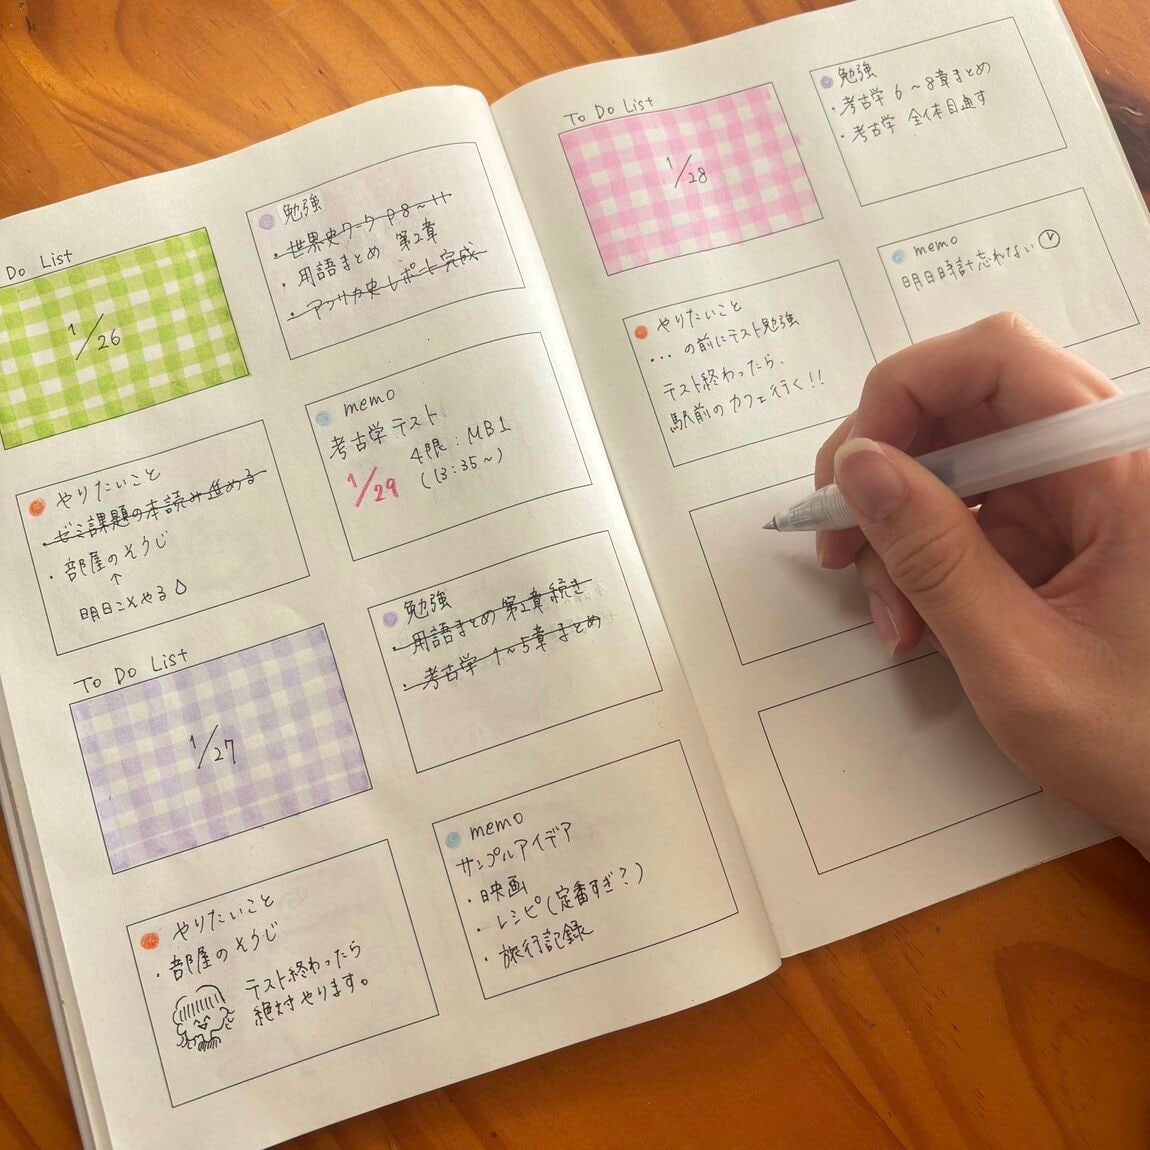 Do List
1/26
勉強
・世界史ワーク P8~11
・用語まとめ 第2章
・アフリカ史レポート完成
やりたいこと
・ゼミ課題の本読み進める
・部屋のそうじ
↑
明日こそやる
memo
考古学テスト
1/29
4限:MB1
(13:35~)
To Do List
1/27
勉強
・用語まとめ 第2章 続き
・考古学 1~5章まとめ
やりたいこと
・部屋のそうじ
テスト終わったら
絶対やります。
memo
サンプルアイデア
・映画
・レシピ(定番すぎ?)
・旅行記録
To Do List
1/28
勉強
・考古学 6~8章まとめ
・考古学 全体目通す
やりたいこと
… の前にテスト勉強
テスト終わったら、
駅前のカフェ行く!!
memo
明日時計忘れない